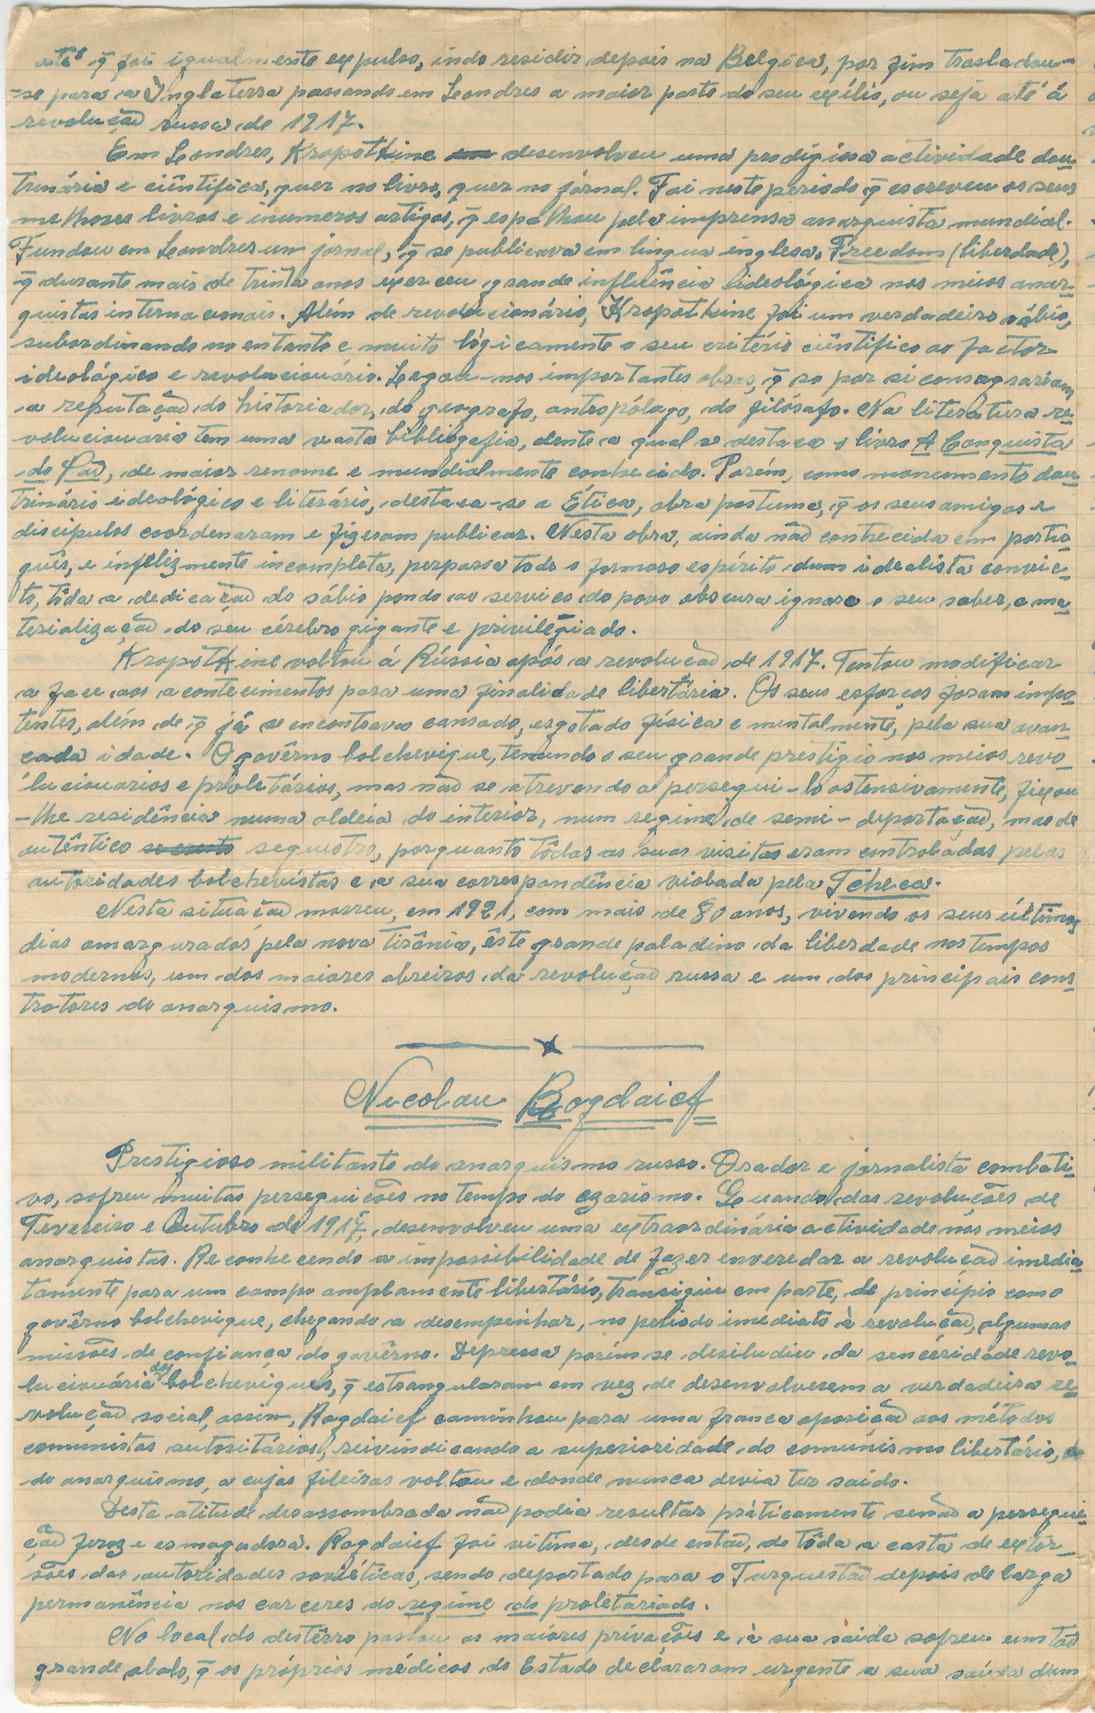 até q̃ foi igualmente expulso, indo residir depois na Belgica, por fim trasladou-
-se para a Inglaterra passando em Londres a maior parte do seu exílio, ou seja até á
revolução russa de 1917.
Em Londres, Kropotkine desenvolveu uma prodigiosa actividade dou-
trinária e ciêntifica, quer no livro, quer no jornal. Foi neste periodo q̃ escreveu os seus
melhores livros e inumeros artigos, q̃ espalhou pela imprensa anarquista mundial.
Fundou em Leondres um jornal, q̃ se publicava em lingua inglesa, Freedom (liberdade),
q̃ durante mais de trinta anos exerceu grande influência ideológica nos meios anar-
quistas internacionais. Além de revolucionário, Kropotkine foi um verdadeiro sábio,
subordinando no entanto e muito lògicamente o seu critério ciêntifico ao factor
ideológico e revolucionario. Legou-nos importantes obras, q̃ so por si consagrariam
a reputação do historiador, do geografo, antropólago, do filósáfo. Na literatura re-
volucionaria tem uma vasta bibliografia, dentre a qual se destaca o livro A Conquista
do Pão, de maior renome e mundialmente conhecido. Porém, como monumento dou-
trinário ideológico e literário, destaca-se a Ética, obra postuma, q̃ os seus amigos e
discipulos coordenaram e fizeram publicar. Nesta obra, ainda não conhecida em portu-
guês, e infelizmente incompleta, perpassa todo o formoso espírito dum idealista convic-
to, tôda a dedicação do sábio pondo ao serviço do povo obscuro ignaro o seu saber, a ma-
terialização do seu cérebro gigante e privilégiado.
Kropotkine voltou á Rússia após a revolução de 1917. Tentou modificar
a face aos acontecimentos para uma finalidade libertária. Os seus esforços foram impo-
tentes, além de q̃ já se encontrava cansado, esgotado física e mentalmente, pela sua avan-
çada idade. O govêrno bolchevique, temendo o seu grande prestígio nos meios revo-
lucionarios e proletários, mas não se atrevendo a persegui-lo ostensivamente, fixou
-lhe residência numa aldeia do interior, num regime de semi-deportação, mas de
autêntico sequestro, porquanto tôdas as suas visitas eram controladas pelas
autoridades bolchevistas e a sua correspondência violada pela Tcheca.
Nesta situação morreu, em 1921, com mais de 80 anos, vivendo os seus últimos
dias amargurados pela nova tirânia, êste grande paladino da liberdade nos tempos
modernos, um dos maiores obreiros da revolução russa e um dos principais cons-
trotores do anarquismo.
Nicolau Rogdaief
Prestigioso militante do anarquismo russo. Orador e jornalista combati-
vo, sofreu muitas perseguições no tempo do czarismo. Quando das revoluções de
Fevereiro e Outubro de 1917, desenvolveu uma extraordinária actividade nos meios
anarquistas. Reconhecendo a impossibilidade de fazer enveredar a revolução imedia-
tamente para um campo amplamente libertário, transigiu em parte, de principio com o
govêrno bolchevique, chegando a desempenhar, no periodo imediato à revolução, algumas
missões de confiança do govêrno. Depressa porém se desiludiu da sinceridade revo-
lucionária dos bolcheviques, q̃ estrangularam em vez de desenvolverem a verdadeira re-
volução social, assim, Rogdaief caminhou para uma franca oposição aos métodos
comunistas autoritários, reivindicando a superioridade do comunismo libertário,
do anarquismo, a cujas fileiras voltou e donde nunca devia ter saido.
Desta atitude desassombrada não podia resultar práticamente senão a persegui-
ção feroz e esmagadora. Rogdaief foi vitima, desde então, de tôda a casta de extor-
sões das autoridades soviéticas, sendo deportado para o Turquestão depois de larga
permanência nos carceres do regime do proletariado.
No local do destêrro passou as maiores privações e à sua saida sofreu um tão
grande abalo, q̃ os próprios médicos do Estado declararam urgente a sua saída dum